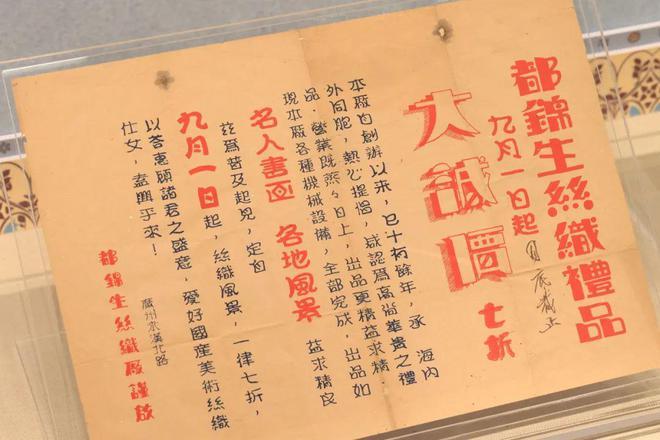 都錦生絲織禮品
九月一日起 月底截止
大減價 七折
本廠自創辦以來，已十有餘年，承 海內
外同胞，熱心提倡，咸認爲高尚華貴之禮
品．營業既蒸々日上，出品更精益求精．
現本廠各種機械設備，全部完成，出品如
名人書画 各地風景 益求精良
茲爲普及起見，定自
九月一日起，絲織風景，一律七折，
以答惠顧諸君之盛意，愛好國産美術絲織
仕女，盍興乎來！
廣州永漢北路
都錦生絲織廠謹啟